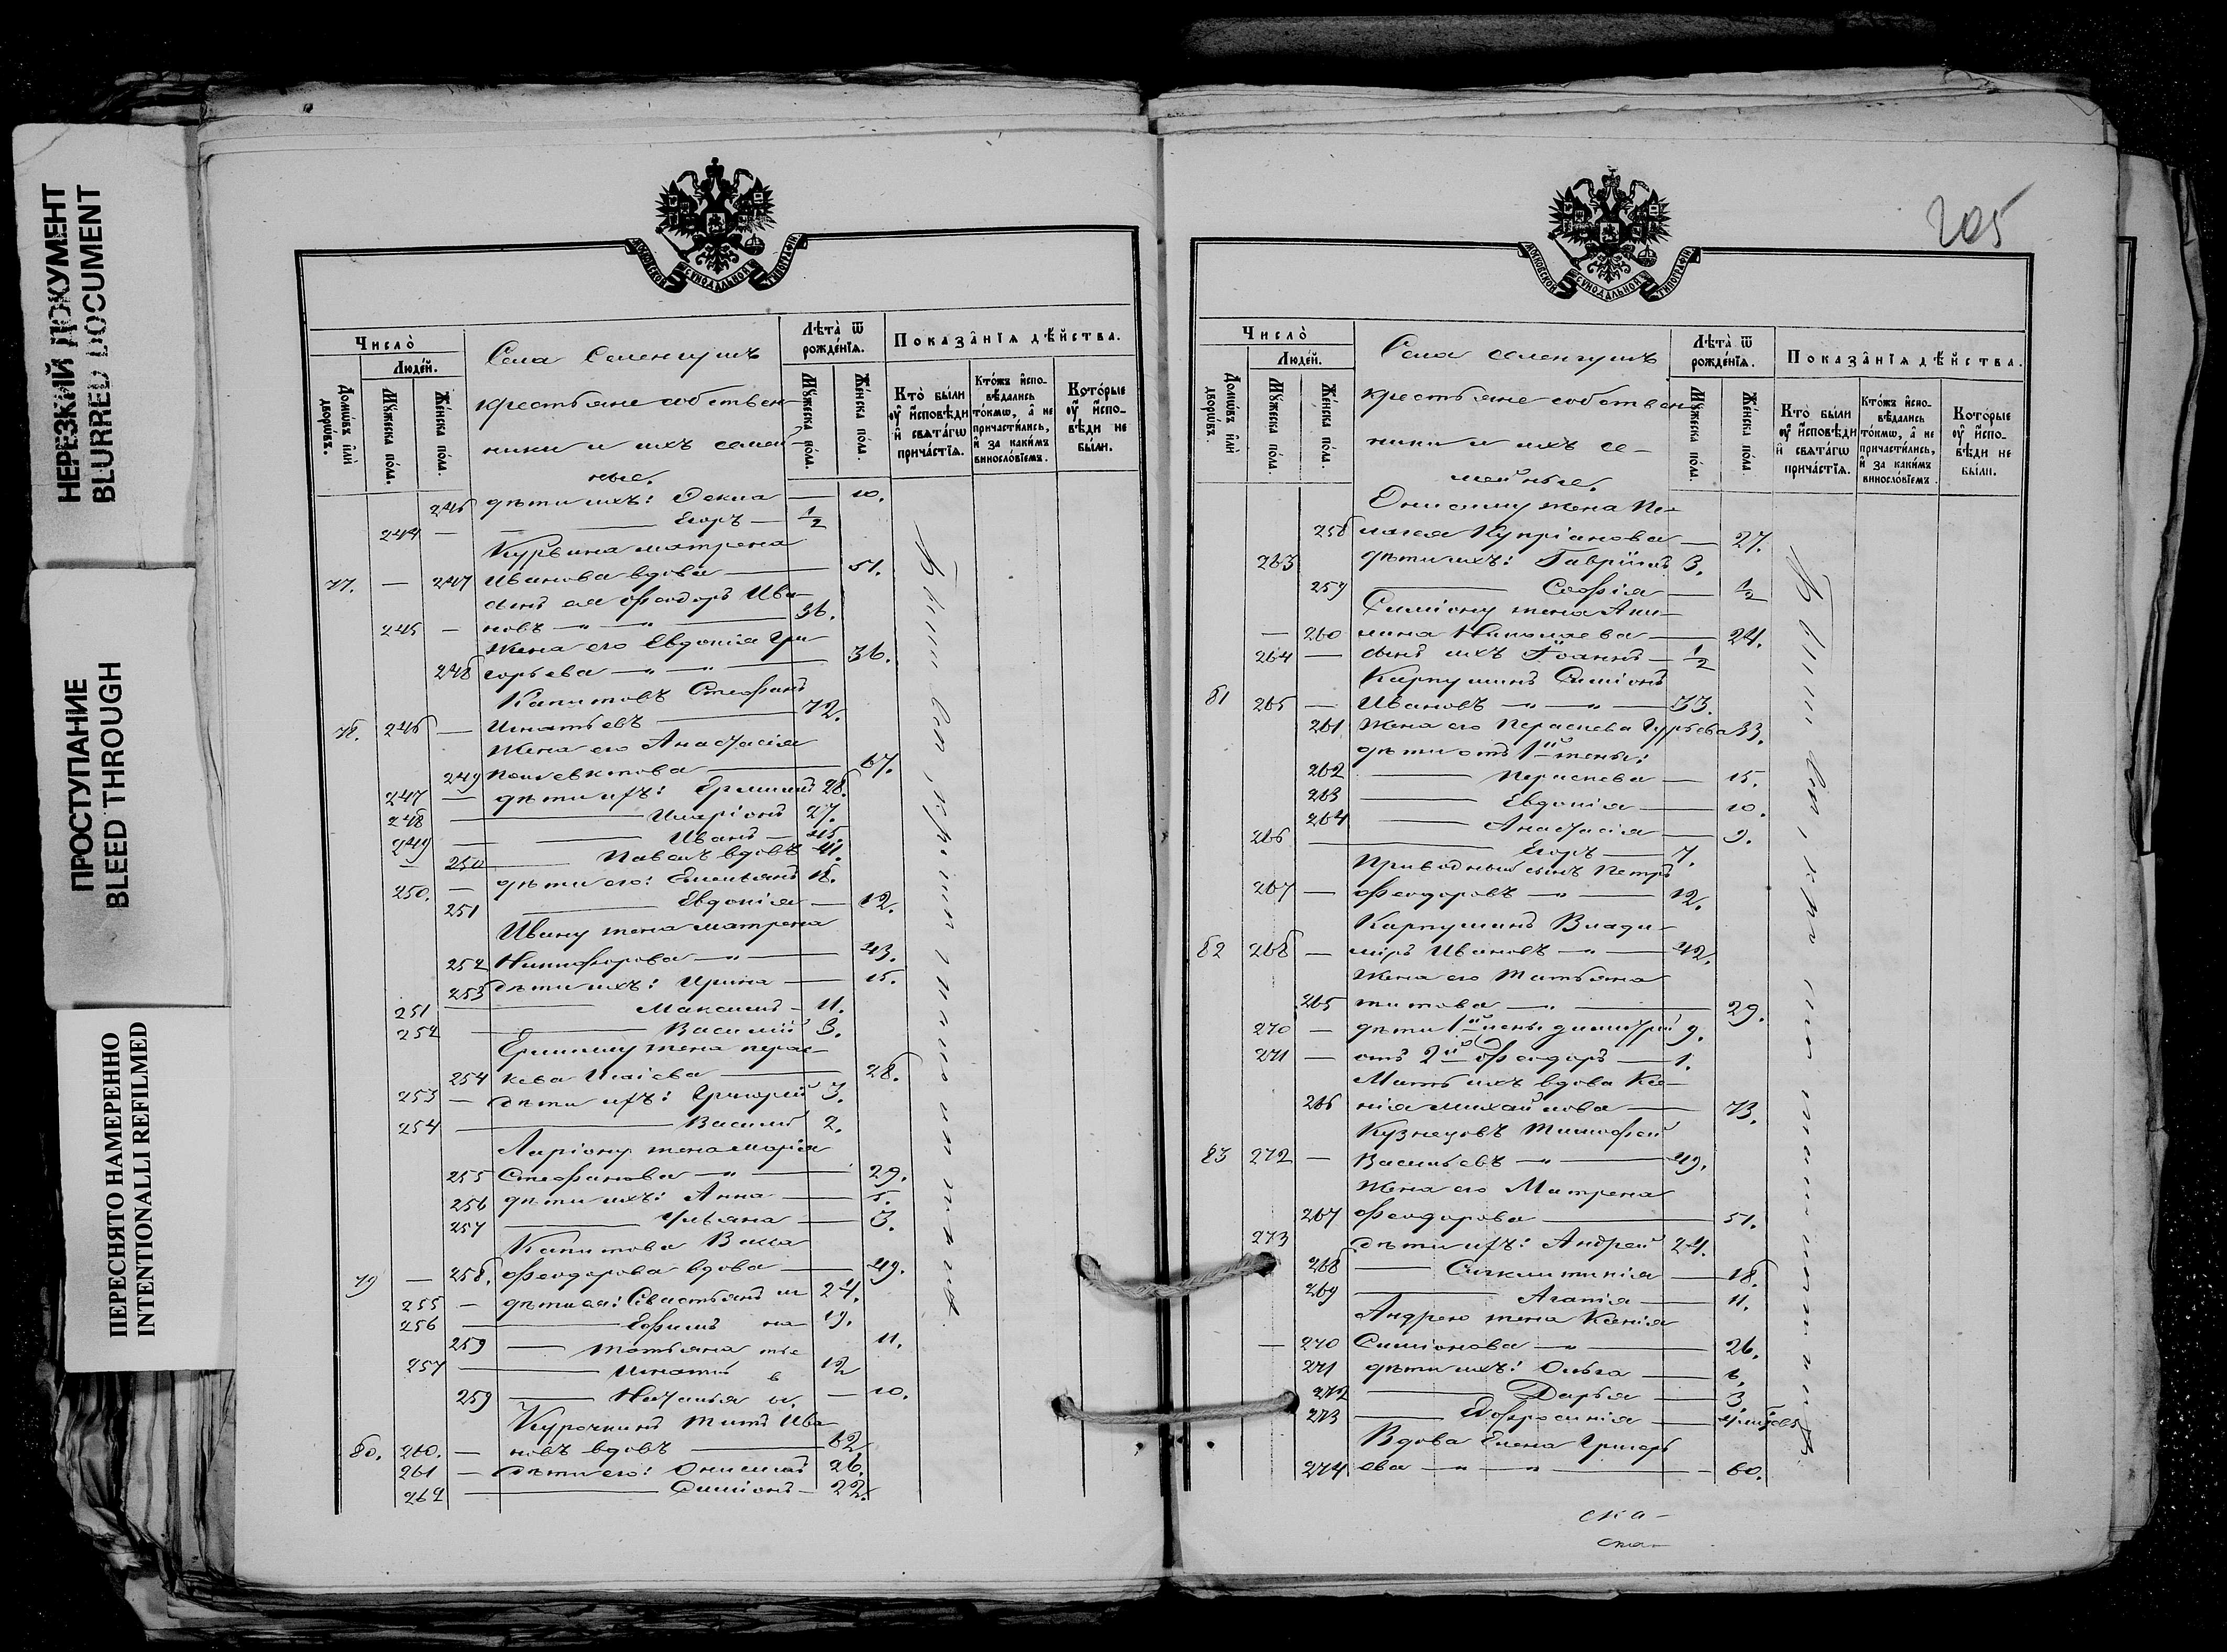 НЕРЕЗКИЙ ДОКУМЕНТ
BLURRED DOCUMENT
ПРОСТУПАНИЕ
BLEED THROUGH
ПЕРЕСНЯТО НАМЕРЕННО
INTENTIONALLI REFILMED
МОСКОВСКОЙ СѴНОДАЛЬНОЙ ТИПОГРАФІИ
Число̀
Домѡ́въ и҆лѝ дворѡ́въ.
Люде́й.
Мꙋ́жеска по́ла.
Же́нска по́ла.
Села Селенгушъ
крестьяне собствен-
ники и ихъ семей-
ные.
Лѣ́та ѿ рожде́нїѧ.
Мꙋ́жеска по́ла.
Же́нска по́ла.
Показа̂нїѧ дѣ́йства.
Кто̀ бы́ли ᲂу҆ и҆́сповѣди и҆ свѧта́гѡ прича́стїѧ.
Кто́жъ и҆спо- вѣ́дались то́кмѡ, а҆ не причасти́лись, и҆ за каки́мъ винослові́емъ.
Кото́рые ᲂу҆ и҆спо- вѣ́ди не бы́ли.
246 дѣти ихъ: Фекла — 10.
244 — Егоръ — 1/2
Курьина Матрена
77. — 247 Иванова вдова — 51.
сынъ ея Феодоръ Ива-
245 — новъ — 36.
Жена его Евдокія Гри-
248 горьева — 36.
Капитовъ Стефанъ
78. 246 — Игнатьевъ — 72.
Жена его Анастасія
249 Поліевктова — 67.
247 — дѣти ихъ: 28.
248 — Иларіонъ 27.
249 — Иванъ — 45.
— 250 — Павелъ вдовъ 41.
250. — дѣти его: Емельянъ 18.
251 — Евдокія — 12.
Ивану жена Матрена
252 Никифорова — 43.
253 дѣти ихъ: Ирина — 15.
251 — Максимъ — 11.
252 — Василій 3.
жена Парас-
254 кева Исаіева — 28.
253 — дѣти ихъ: Григорій 3.
254 — Василій 2.
Ларіону жена Марія
255 Стефанова — 29.
256 дѣти ихъ: Анна — 5.
257 — Ульяна — 3.
Капитова Васса
79 — 258. Феодорова вдова — 49.
255 — дѣти ея: Севастьянъ 24.
256 — Ефимъ 19.
259 — Татьяна 11.
257 — Игнатій 12
259 — Наталья — 10.
Курочкинъ Титъ Ива-
80. 260. — новъ вдовъ — 62.
261 — дѣти его: Онисимъ 26.
262 — Симіонъ — 22.
205
МОСКОВСКОЙ СѴНОДАЛЬНОЙ ТИПОГРАФІИ
Число̀
Домѡ́въ и҆лѝ дворѡ́въ.
Люде́й.
Мꙋ́жеска по́ла.
Же́нска по́ла.
Села Селенгушъ
крестьяне собствен-
ники и ихъ се-
мейные.
Лѣ́та ѿ рожде́нїѧ.
Мꙋ́жеска по́ла.
Же́нска по́ла.
Показа̂нїѧ дѣ́йства.
Кто̀ бы́ли ᲂу҆ и҆́сповѣди и҆ свѧта́гѡ прича́стїѧ.
Кто́жъ и҆спо- вѣ́дались то́кмѡ, а҆ не причасти́лись, и҆ за каки́мъ винослові́емъ.
Кото́рые ᲂу҆ и҆спо- вѣ́ди не бы́ли.
Онисиму жена Пе-
258 лагея Купріанова — 27.
263 дѣти ихъ: Гавріилъ 3.
259 — Софія — 1/2
Симіону жена Аки-
— 260 лина Николаева — 24.
264 — сынъ ихъ Іоаннъ — 1/2
Карпушинъ Симіонъ
81 265 — Ивановъ — 33.
261 Жена его Параскева Гурьева 33.
дѣти отъ 1й жены:
262 — Параскева — 15.
263 — Евдокія — 10.
264 — Анастасія — 9.
266 — Егоръ — 7.
Приводный сынъ Петръ
267 — Феодоровъ — 12.
Карпушинъ Влади-
82 268 — міръ Ивановъ — 42.
Жена его Татьяна
265 Титова — 29.
270 — дѣти 1й жены Димитрій 9.
271 — отъ 2й Феодоръ — 1.
Мать ихъ вдова Ксе-
266 нія Михайлова — 73.
Кузнецовъ Тимофей
83 272 — Васильевъ — 49.
Жена его Матрена
267 Феодорова — 51.
273 дѣти ихъ: Андрей 24.
268 — Сигклитикія — 18.
269 — Агапія — 11.
Андрею жена Ксенія
— 270 Симіонова — 26.
271 дѣти ихъ: Ольга — 6.
272 — Дарья — 3.
273 — Евфросинія —
Вдова Елена Григорь-
274 ева — 60.